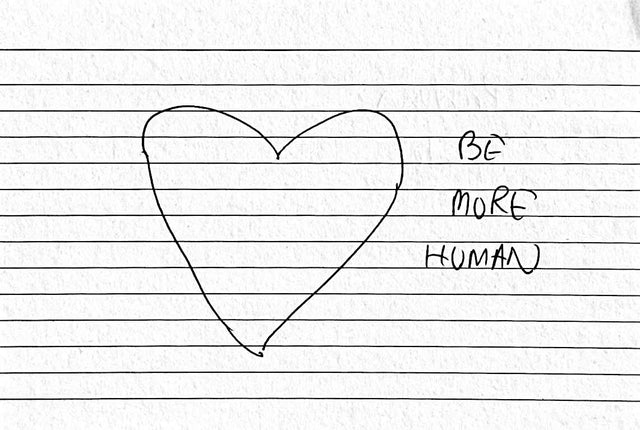 BE
MORE
HUMAN